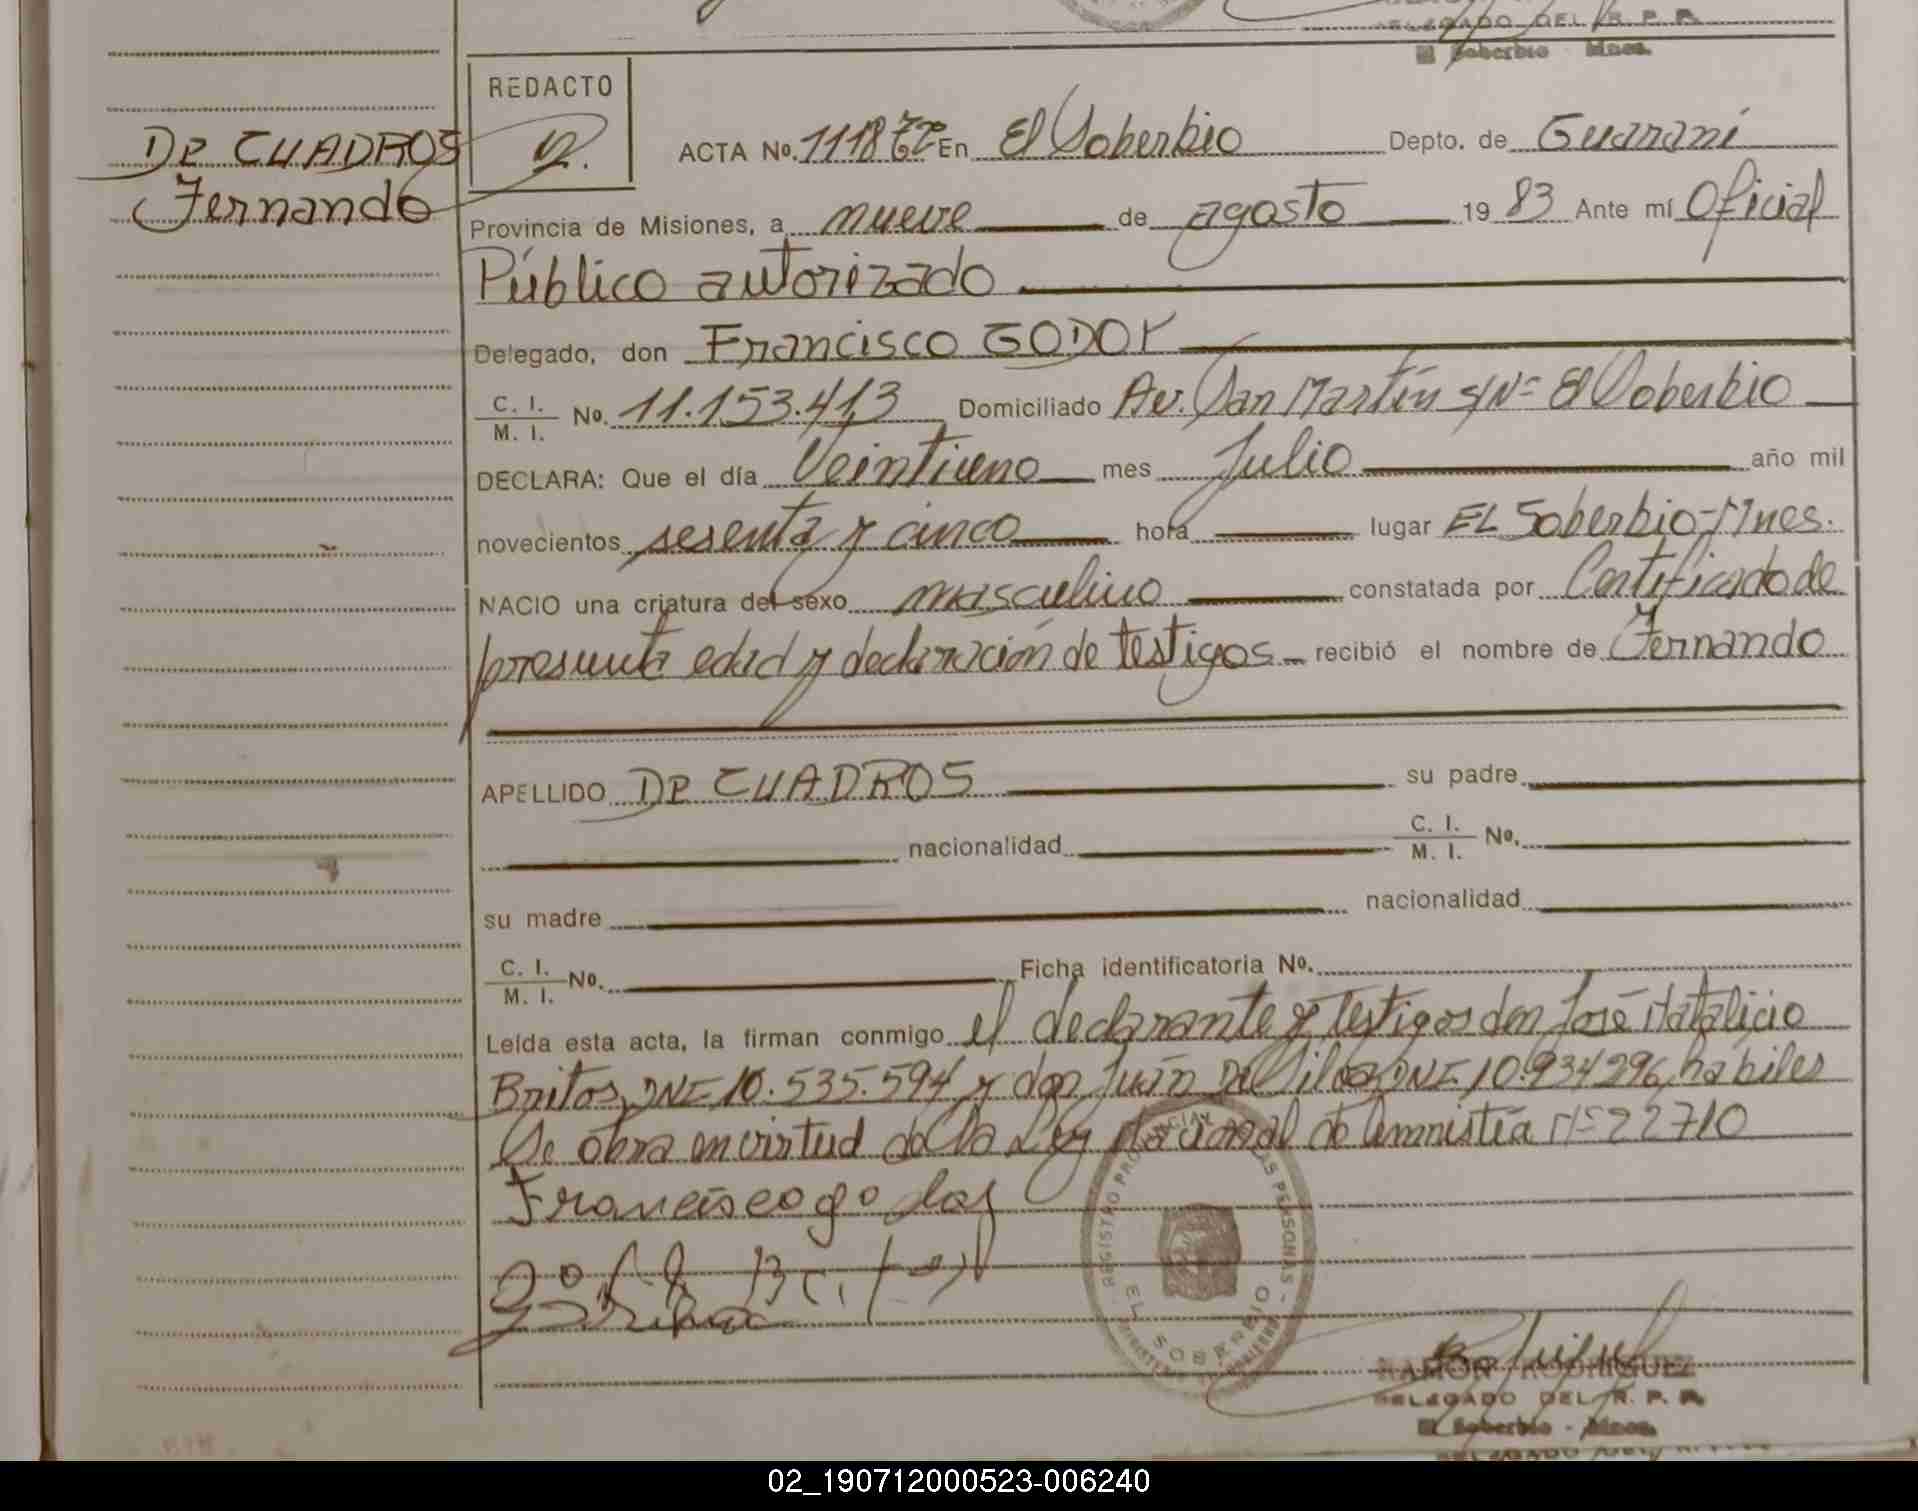 DELEGADO DEL R. P. P.
El Soberbio - Mnes.
REDACTO
DE CUADROS
Fernando
ACTA No. 1118 En El Soberbio Depto. de Guaraní
Provincia de Misiones, a nueve de agosto 1983 Ante mí Oficial
Público autorizado
Delegado, don Francisco GODOY
C. I. / M. I. No. 11.153.413 Domiciliado Av. San Martín S/Nº El Soberbio
DECLARA: Que el día Veintiuno mes Julio año mil
novecientos sesenta y cinco hora lugar EL Soberbio-Mnes.
NACIO una criatura del sexo masculino constatada por Certificado de
presunta edad y declaración de testigos recibió el nombre de Fernando
APELLIDO DE CUADROS su padre
nacionalidad C. I. / M. I. No.
su madre nacionalidad
C. I. / M. I. No. Ficha identificatoria No.
Leída esta acta, la firman conmigo el declarante y testigos don José Natalicio
Britos, DNI. 10.535.594 y don Juán Da Silva, DNI. 10.934296, habiles
Se obra en virtud de la Ley Nacional de Amnistía Nº 22710
Francisco godoy
REGISTRO PROVINCIAL DE LAS PERSONAS
EL SOBERBIO
RAMON RODRIGUEZ
DELEGADO DEL R. P. P.
El Soberbio - Mnes.
02_190712000523-006240